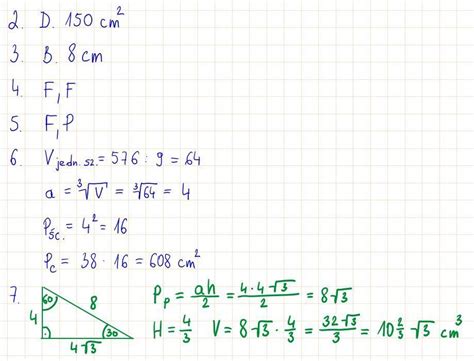 2. D. 150 cm²
3. B. 8 cm
4. F, F
5. F, P
6. V jedn. sz. = 576 : 9 = 64
a = ∛V = ∛64 = 4
Pśc. = 4² = 16
Pc = 38 · 16 = 608 cm²
7. 60 8 4 30 4√3
Pp = ah/2 = 4·4√3/2 = 8√3
H = 4/3 V = 8√3 · 4/3 = 32√3/3 = 10 2/3 √3 cm³